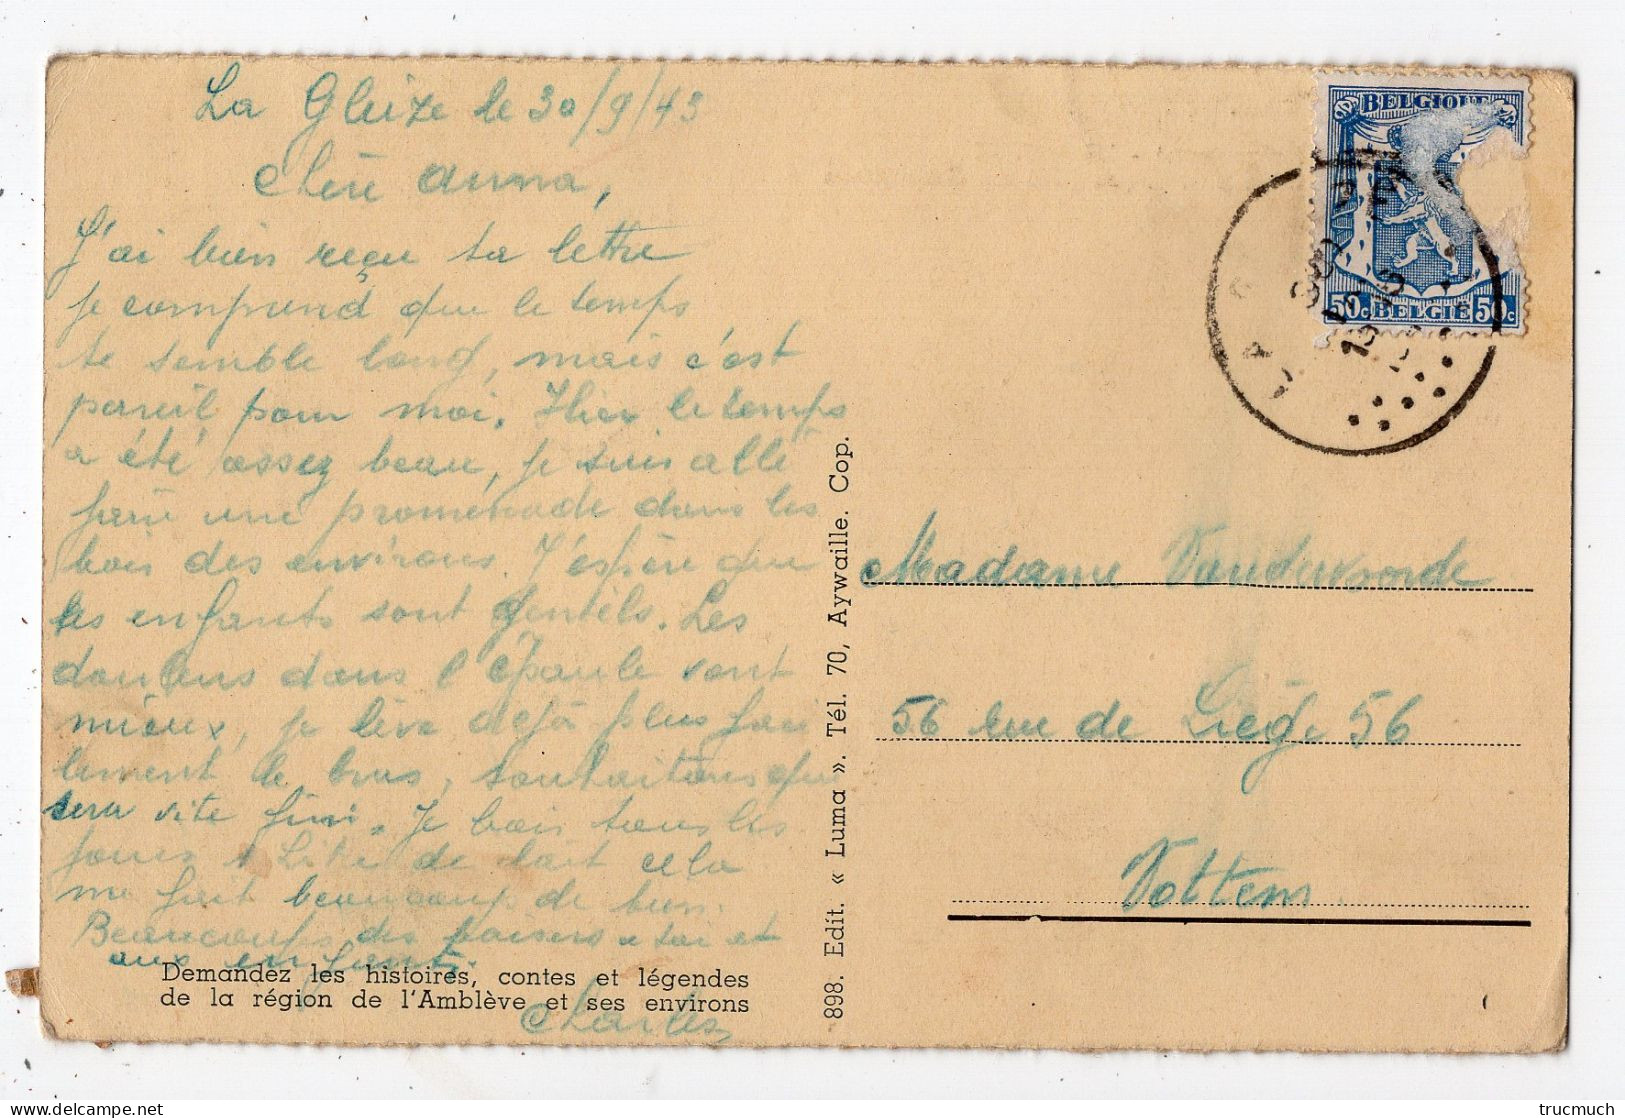 La Gleize le 30/9/43
Chère Anna,
J'ai bien reçu ta lettre
je comprend que le temps
te semble long, mais c'est
pareil pour moi. Hier le temps
a été assez beau, je suis allé
faire une promenade dans les
bois des environs. J'espère que
les enfants sont gentils. Les
douleurs dans l'épaule sont
mieux, je lève déjà plus faci
lement le bras, souhaitons que
sera vite fini. Je bois tous les
jours 1 Litre de lait cela
me fait beaucoup de bien.
Beaucoups des baisers a toi et
aux enfants.
Charles
Demandez les histoires, contes et légendes
de la région de l'Amblève et ses environs
898. Edit. « Luma ». Tél. 70, Aywaille. Cop.
BELGIQUE
50c BELGIË 50c
Madame Vandervorde
56 rue de Liège 56
Vottem
trucmuch